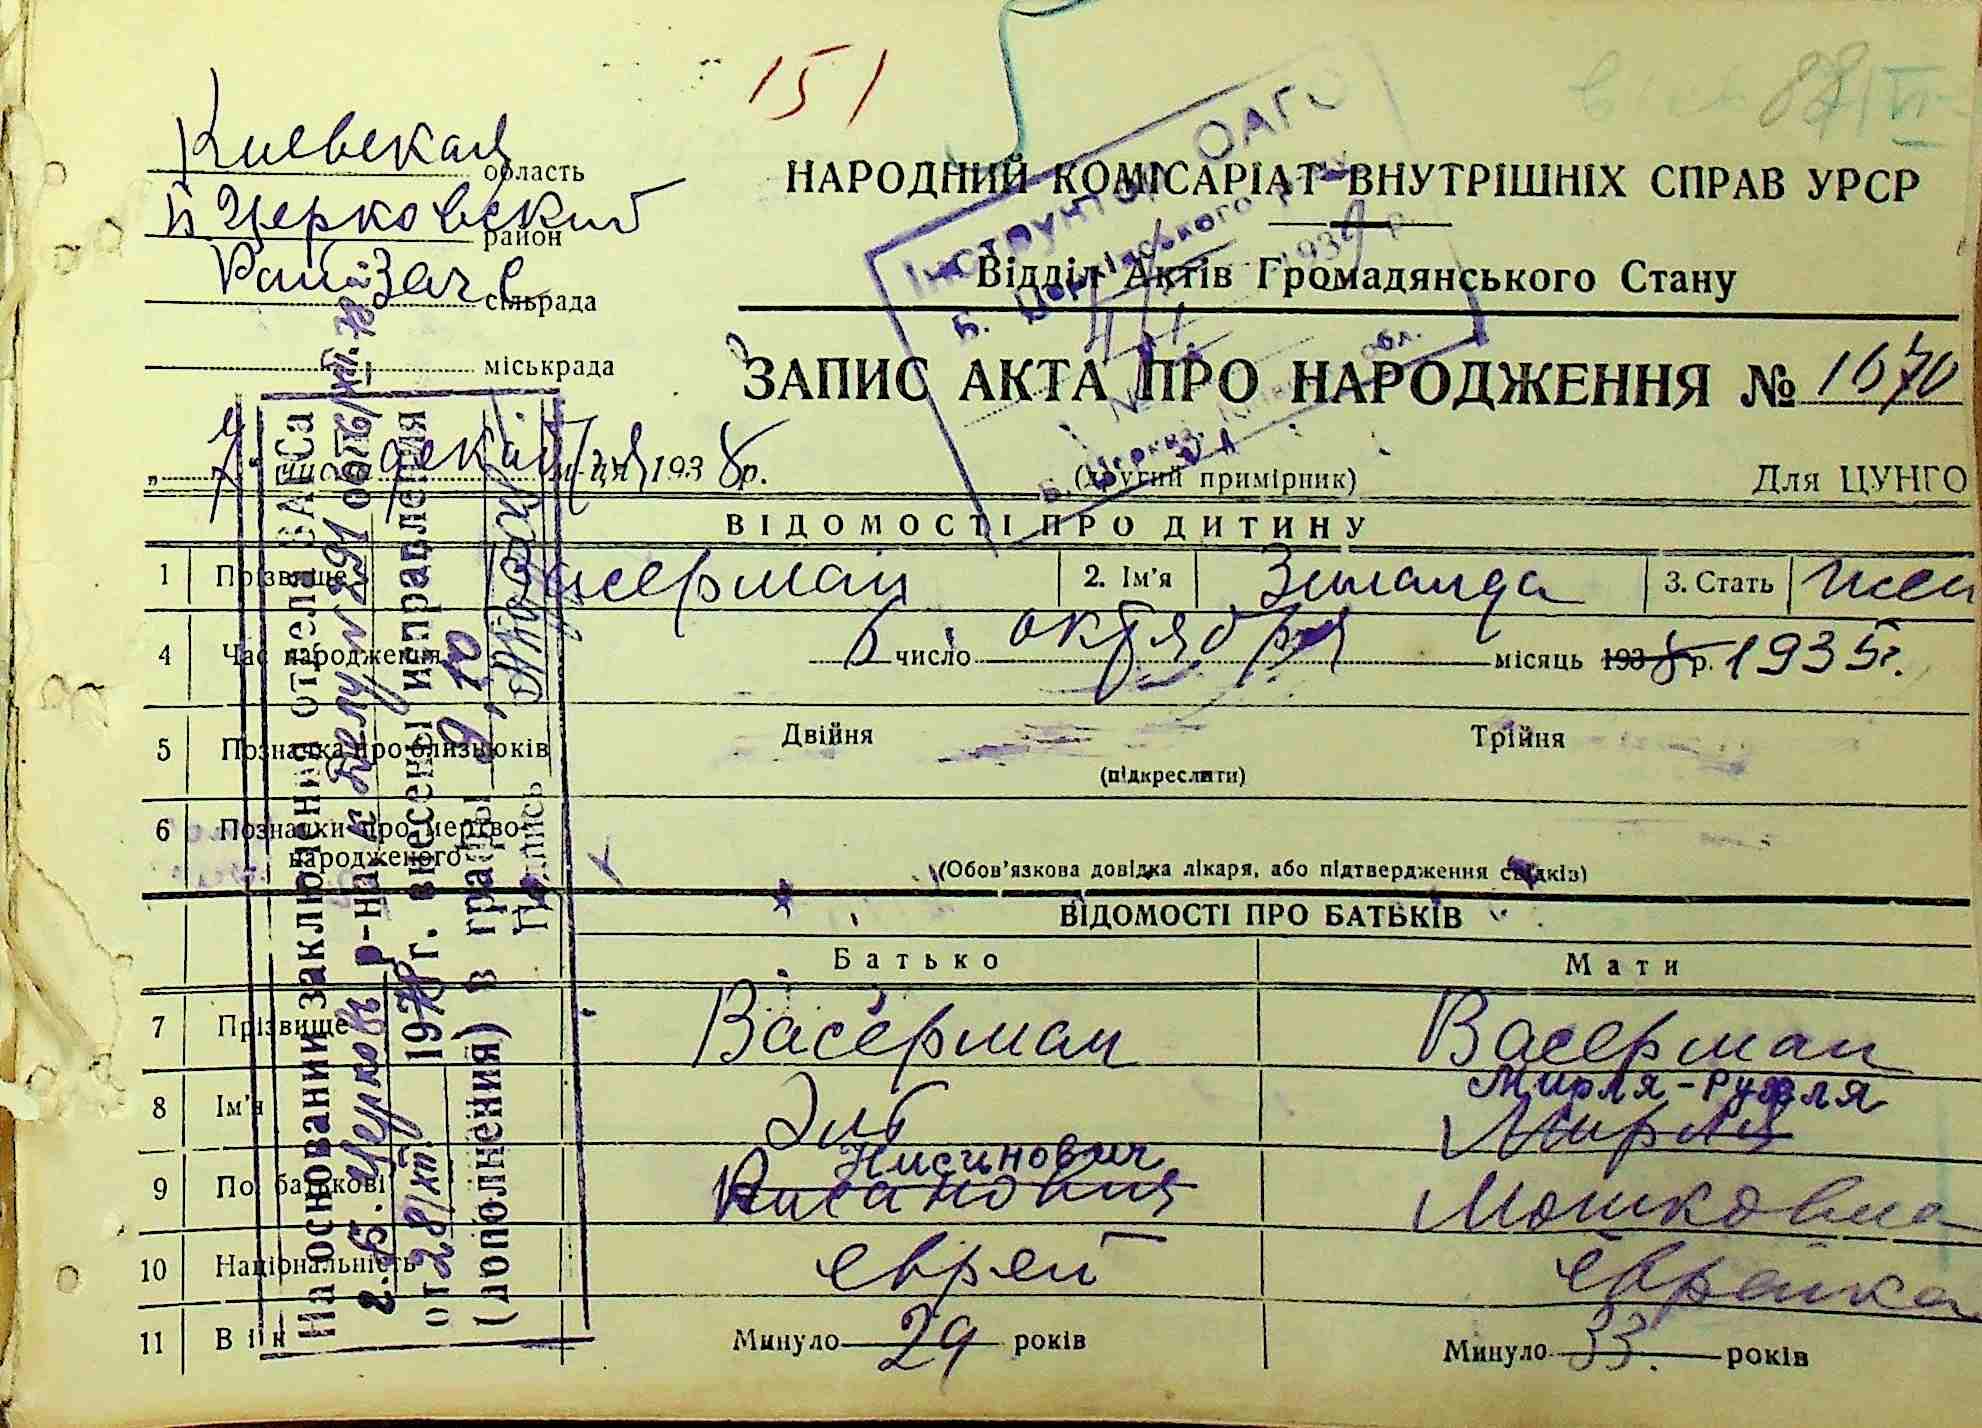 151
Киевская область
Б Церковский район
РайЗагс сільрада
міськрада
НАРОДНИЙ КОМІСАРІАТ ВНУТРІШНІХ СПРАВ УРСР
Відділ Актів Громадянського Стану
ЗАПИС АКТА ПРО НАРОДЖЕННЯ № 1670
Інструктор ОАГС
Б. Церківського р
1939 р.
число декабря м-ця 1938 р.
(другий примірник)
Для ЦУНГО
ВІДОМОСТІ ПРО ДИТИНУ
1 Прізвище Васерман 2. Ім'я Зинаида 3. Стать жен
4 Час народження 6 число октября місяць 1938 р. 1935 г.
5 Позначка про близнюків Двійня Трійня
(підкреслити)
6 Позначки про мертво-
народженого
(Обов'язкова довідка лікаря, або підтвердження свідків)
ВІДОМОСТІ ПРО БАТЬКІВ
Батько Мати
7 Прізвище Васерман Васерман
Мирля-Рухля
8 Ім'я Эль Мирля
Нисинович
9 По батькові Нисанович Мошковна
10 Національність еврей еврейка
11 Вік Минуло 29 років Минуло 33. років
На основании заключения отдела ЗАГСа
г. Б. Церковь р-на к делу N 291
от 28/XII 1978 г. внесены исправления
(дополнения) в графы 9, 10
Подпись